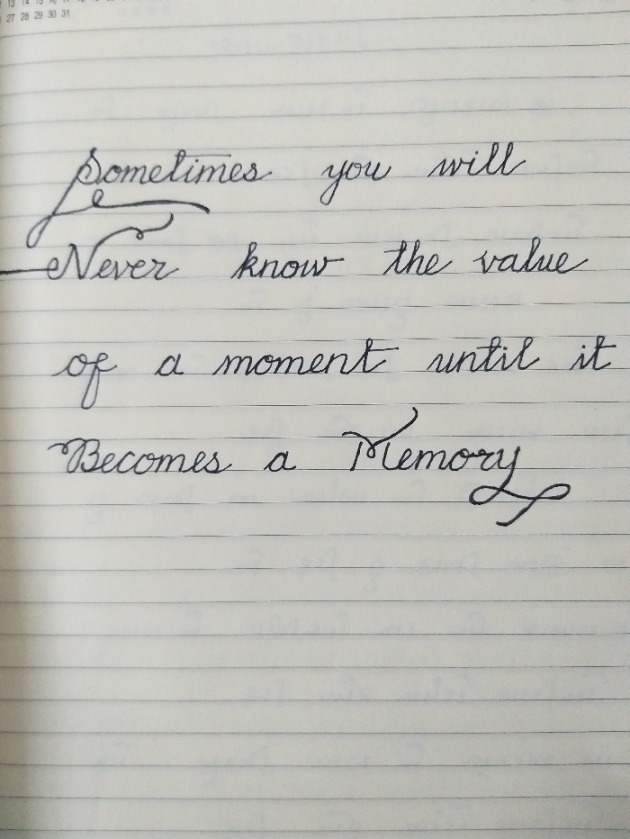 13 14 15 16 17 18 19 20
27 28 29 30 31
Sometimes you will
Never know the value
of a moment until it
Becomes a Memory